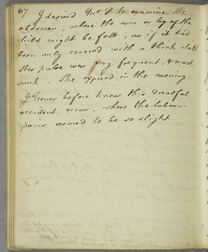 67 I desired Dr. D. to examine the
abdomen, where the arm or leg of the
child might be felt, as if it had
been only covered with a thick cloth
Her pulse was very frequent, & much
sunk. She expired in the morning.
I never before knew this dreadful
accident occur, where the labour-
pains seemed to be so slight.